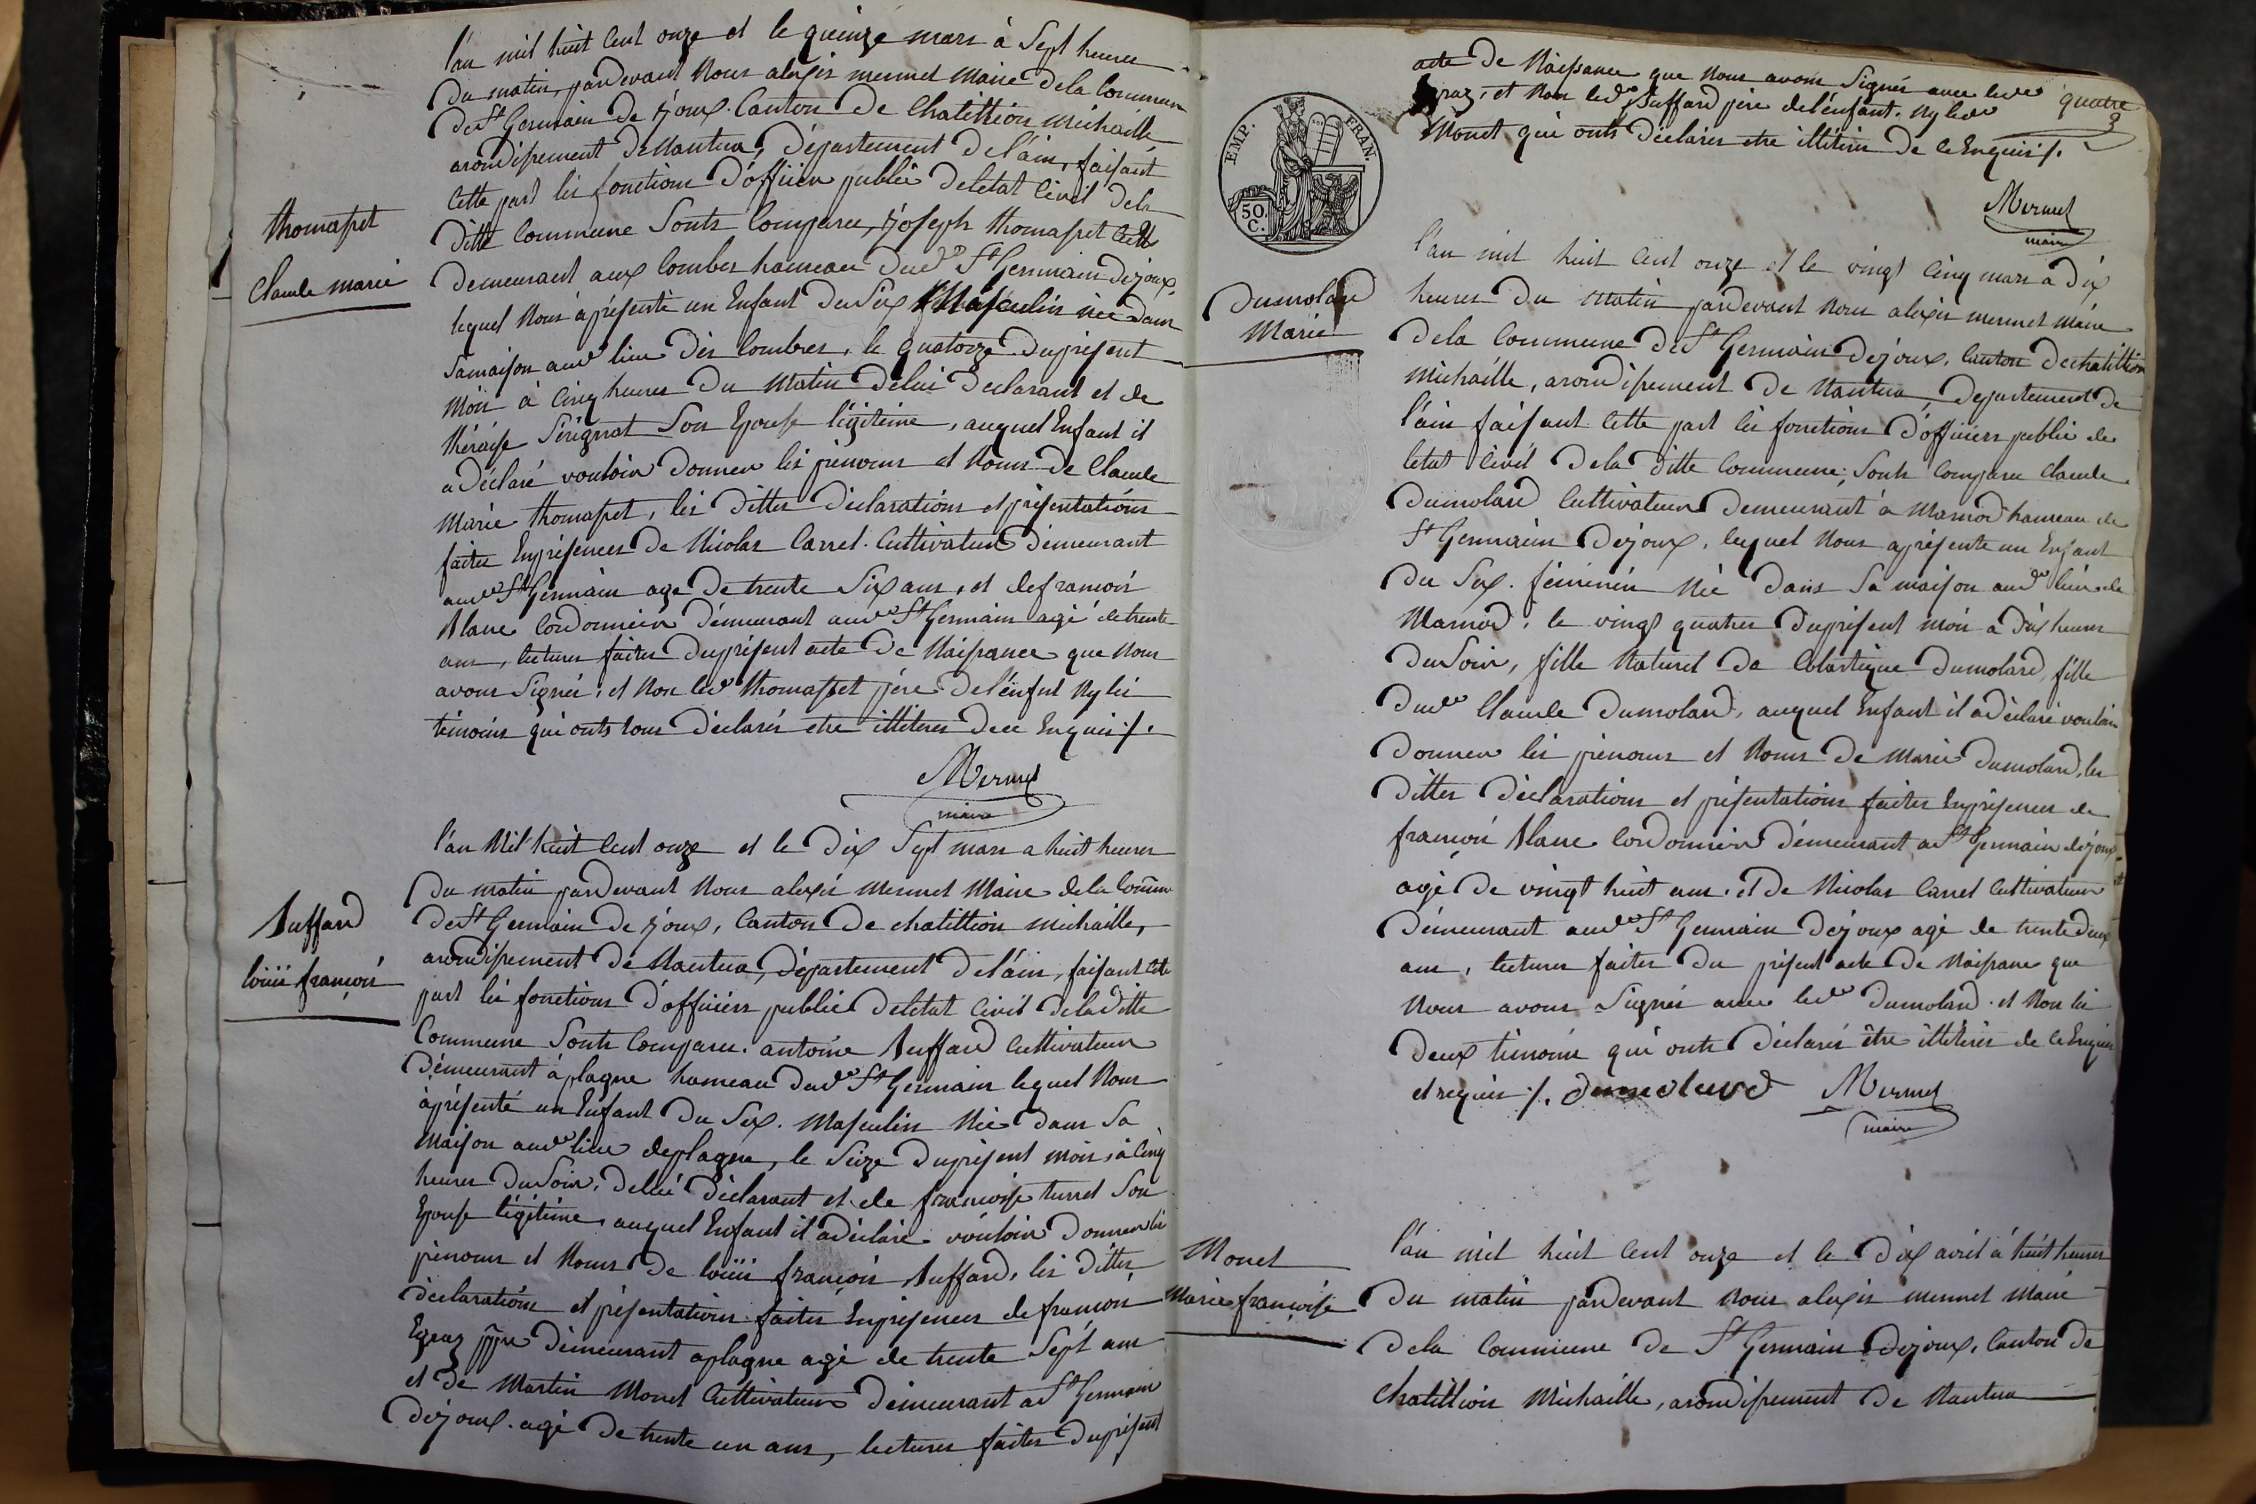 l'an mil huit cent onze et le quinze mars à Sept heures
du matin, pardevant Nous alexis mermet Maire de la Commune
de St Germain de joux. Canton de Chatillion michaille
arondissement de Nantua, Département de l'ain, faisant
cette part les fonctions d'officier publié de letat Civil de la
ditte Commune Sonts Comparu, joseph thomasset
demeurant aux Combes hameau dud St Germain dejoux,
lequel Nous à présenté un Enfant du Sex Masculin née dans
Samaison aud lieu des Combes, le quatorze du présent
Mois à Cinq heures du Matin de lui déclarant et de
thérése Sérignat Son Epouse légitime, auquel Enfant il
a déclaré vouloir donner les prénoms et Noms de Claude
thomasset
Claude marie
Marie thomasset, les dittes déclarations et présentations
faites Enprésences de Nicolas Carrel. Cultivateur demeurant
aud St Germain age de trente Six ans, et de francois
Blanc Cordonnier demeurant aud St Germain agé de trente
ans, lectures faites du présent acte de Naissance que Nous
avons Signés, et Non led thomasset pére de l'énfnt Ny les
témoins qui onts tous déclarés etre illiterés de ce Enquis /.
Mermet
maire
Buffard
loüis françois
l'an Mil huit Cent onze et le dix Sept mars a huit heures
du matin pardevant Nous alexis mermet Maire de la Comme
de St Germain de joux, Canton de chatillion michaille,
arondissement de Nantua, Département de l'áin, faisant cette
part les fonctions d'officiers publié de letat Civil de la ditte
Commune Sonts Comparu. antoine Buffard Cultivateur
Demeurant á plagne hameau dud St Germain lequel Nous
àprésenté un Enfant du Sex. Masculin Née dans Sa
Maison aud lieu de plagne, le Seize du présent mois, à Cinq
heures du Soir, de lui déclarant et de françoise turrel Son
Epouse légitime, auquel Enfant il a déclaré vouloir donner les
prénoms et Noms de loüis françois Buffard, les dittes
déclarations et présentations faites Enprésences de francois
Egraz ppre demeurant a plagne agé de trente Sept ans
et de Martin Monet Cultivateur demeurant a St Germain
dejoux. agé de trente un ans, lectures faites du présent
acte de Naissance que Nous avons Signés avec led
Egraz, et Non led Buffard pére de lénfant. Ny led
Monet qui onts déclarés etre illitéres de ce Enquis /.
quatre
Mermet
maire
EMP. FRAN.
50. C.
Dumolard
Marie
l'an mil huit Cent onze et le vingt Cinq mars a dix
heures du Matin pardevant Nous alexis mermet Maire
de la Commune de St Germain dejoux, Canton de chatillion
Michaille, arondissement de Nantua, département de
l'áin faisant Cette part les fonctions d'officiers publié de
letat Civil de la ditte Commune, Sonts Comparu Claude
dumolard Cultivateur demeurant à Marnod hameau de
St Germain dejoux, lequel Nous a présente un Enfant
du Sex. féminin Née dans Sa maison aud lieu de
Marnod, le vingt quatres du présent mois a dix heures
du Soir, fille Naturel de Colastique dumolard, fille
dud Claude dumolard, auquel Enfant il a déclaré vouloir
donner les prénoms et Noms de Marie dumolard, les
dittes déclarations et présentations faites Enprésences de
françois Blanc Cordonnier demeurant a St Germain dejoux
agé de vingt huit ans, et de Nicolas Carrel Cultivateur
demeurant aud St Germain dejoux agé de trente deux
ans, lectures faites du présent acte de Naissance que
Nous avons Signés avec led dumolard. et Non les
deux témoins qui onts déclarés être illitérés de ce Enquis
et requis /. dumolard Mermet
maire
Monet
Marie françoise
l'án mil huit Cent onze et le dix avril á huit heures
du matin pardevant Nous alexis mermet Maire
de la Commune de St Germain dejoux, Canton de
Chatillion Michaille, arondissement de Nantua